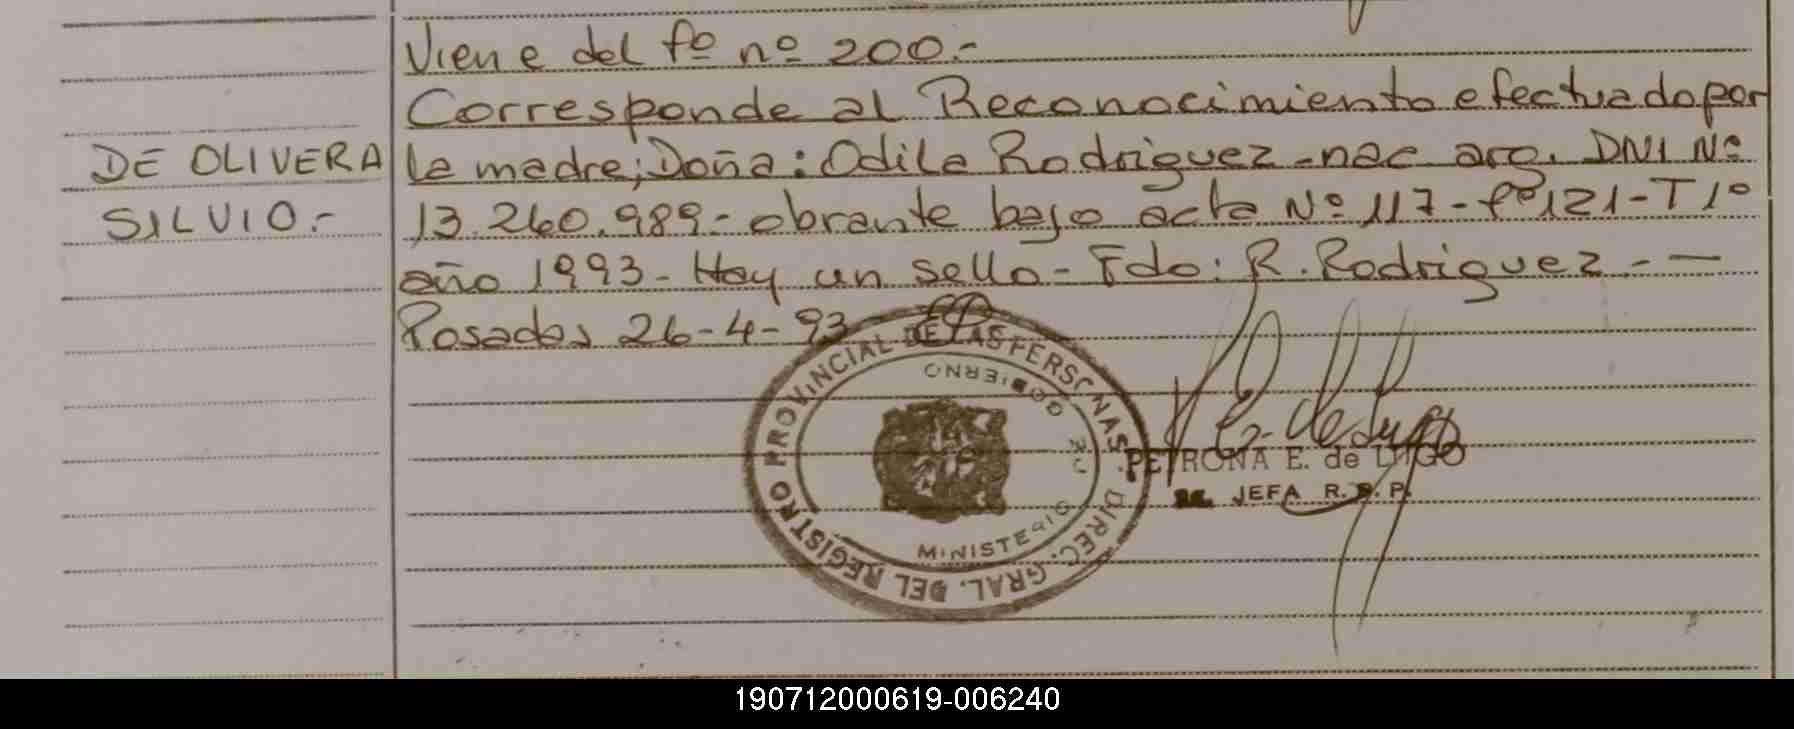 Viene del fº nº 200.-
Corresponde al Reconocimiento efectuado por
DE OLIVERA
la madre; Doña: Odila Rodriguez - nac arg. DNI Nº
SILVIO.-
13.260.989.- obrante bajo acta Nº 117 - fº 121 - T 1º
año 1993 - Hay un sello - Fdo: R. Rodriguez. - —
Posadas 26-4-93
REGISTRO PROVINCIAL DE LAS PERSONAS. DIREC. GRAL. DEL
MINISTERIO DE GOBIERNO
PETRONA E. de LUGO
JEFA R. P.
190712000619-006240